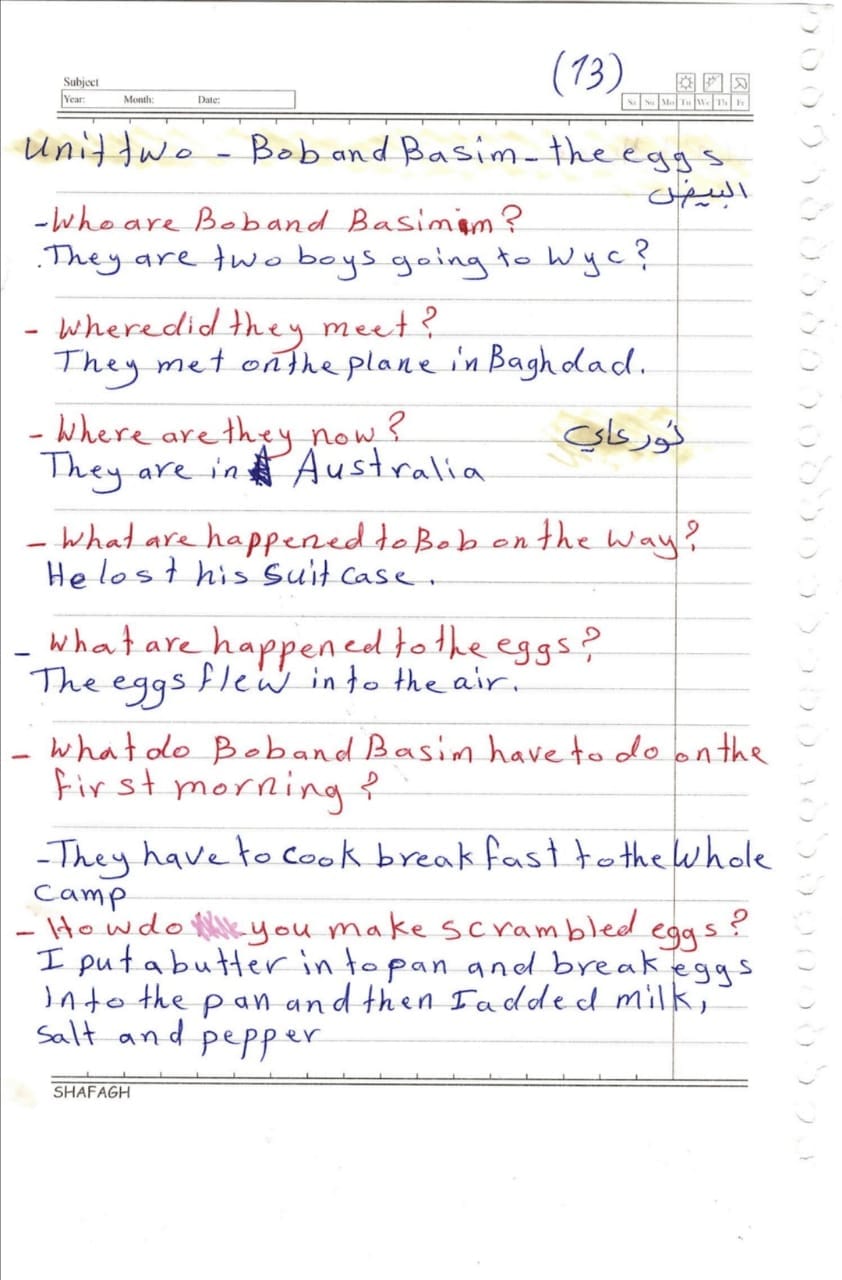 (13)
Subject
Year: Month: Date:
Sa Su Mo Tu We Th Fr
Unit two - Bob and Basim - the eggs
البيض
- Who are Bob and Basimim?
. They are two boys going to Wyc?
- Where did they meet?
They met on the plane in Baghdad.
- Where are they now?
They are in Australia
- What are happened to Bob on the way?
He lost his suit case.
- What are happened to the eggs?
The eggs flew in to the air.
- What do Bob and Basim have to do on the
first morning?
- They have to cook break fast to the whole
camp
- How do you make scrambled eggs?
I put a butter in to pan and break eggs
into the pan and then I added milk,
salt and pepper
SHAFAGH